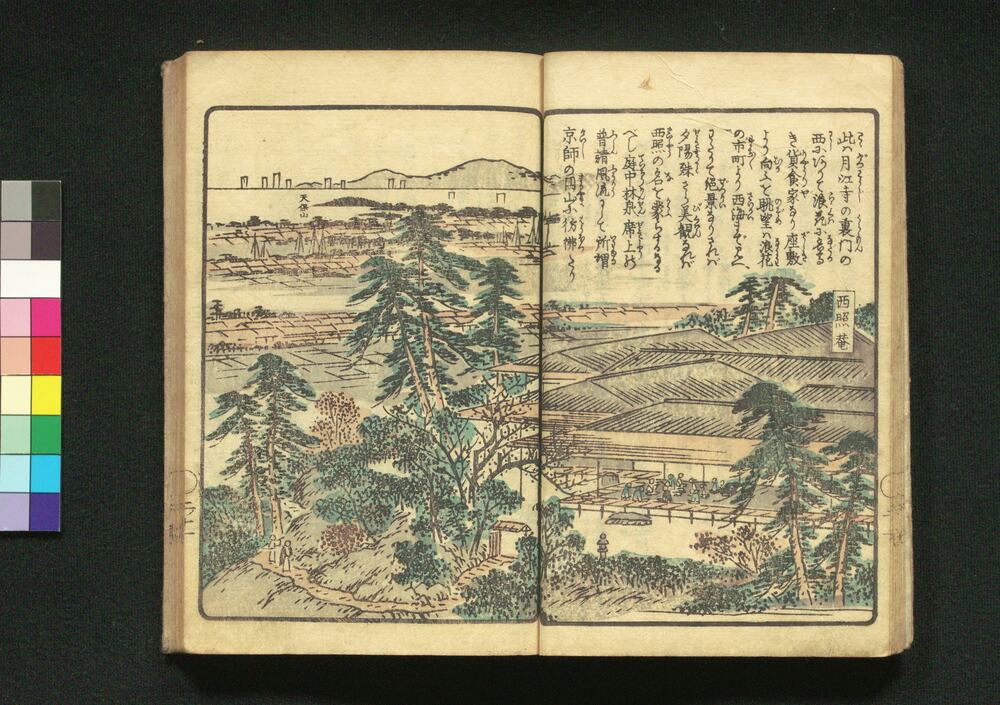 此ハ月江寺の裏門の
西にありて浪花に名高
き貨食家なり座敷
より向ふを眺望ハ浪花
の市町より西海まで一
絶景なりされバ
夕陽殊さら美観なれバ
西照の名を
べし庭中林泉席上の
普請風流にして所謂
京師の円山に彷彿たり
西照菴
天保山